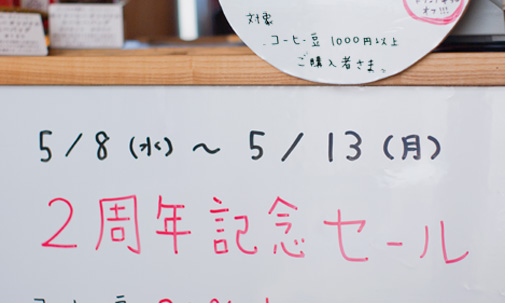 オフ!!!
対象
コーヒー豆 1000円以上
ご購入者さま。
5/8(水)～5/13(月)
2周年記念セール